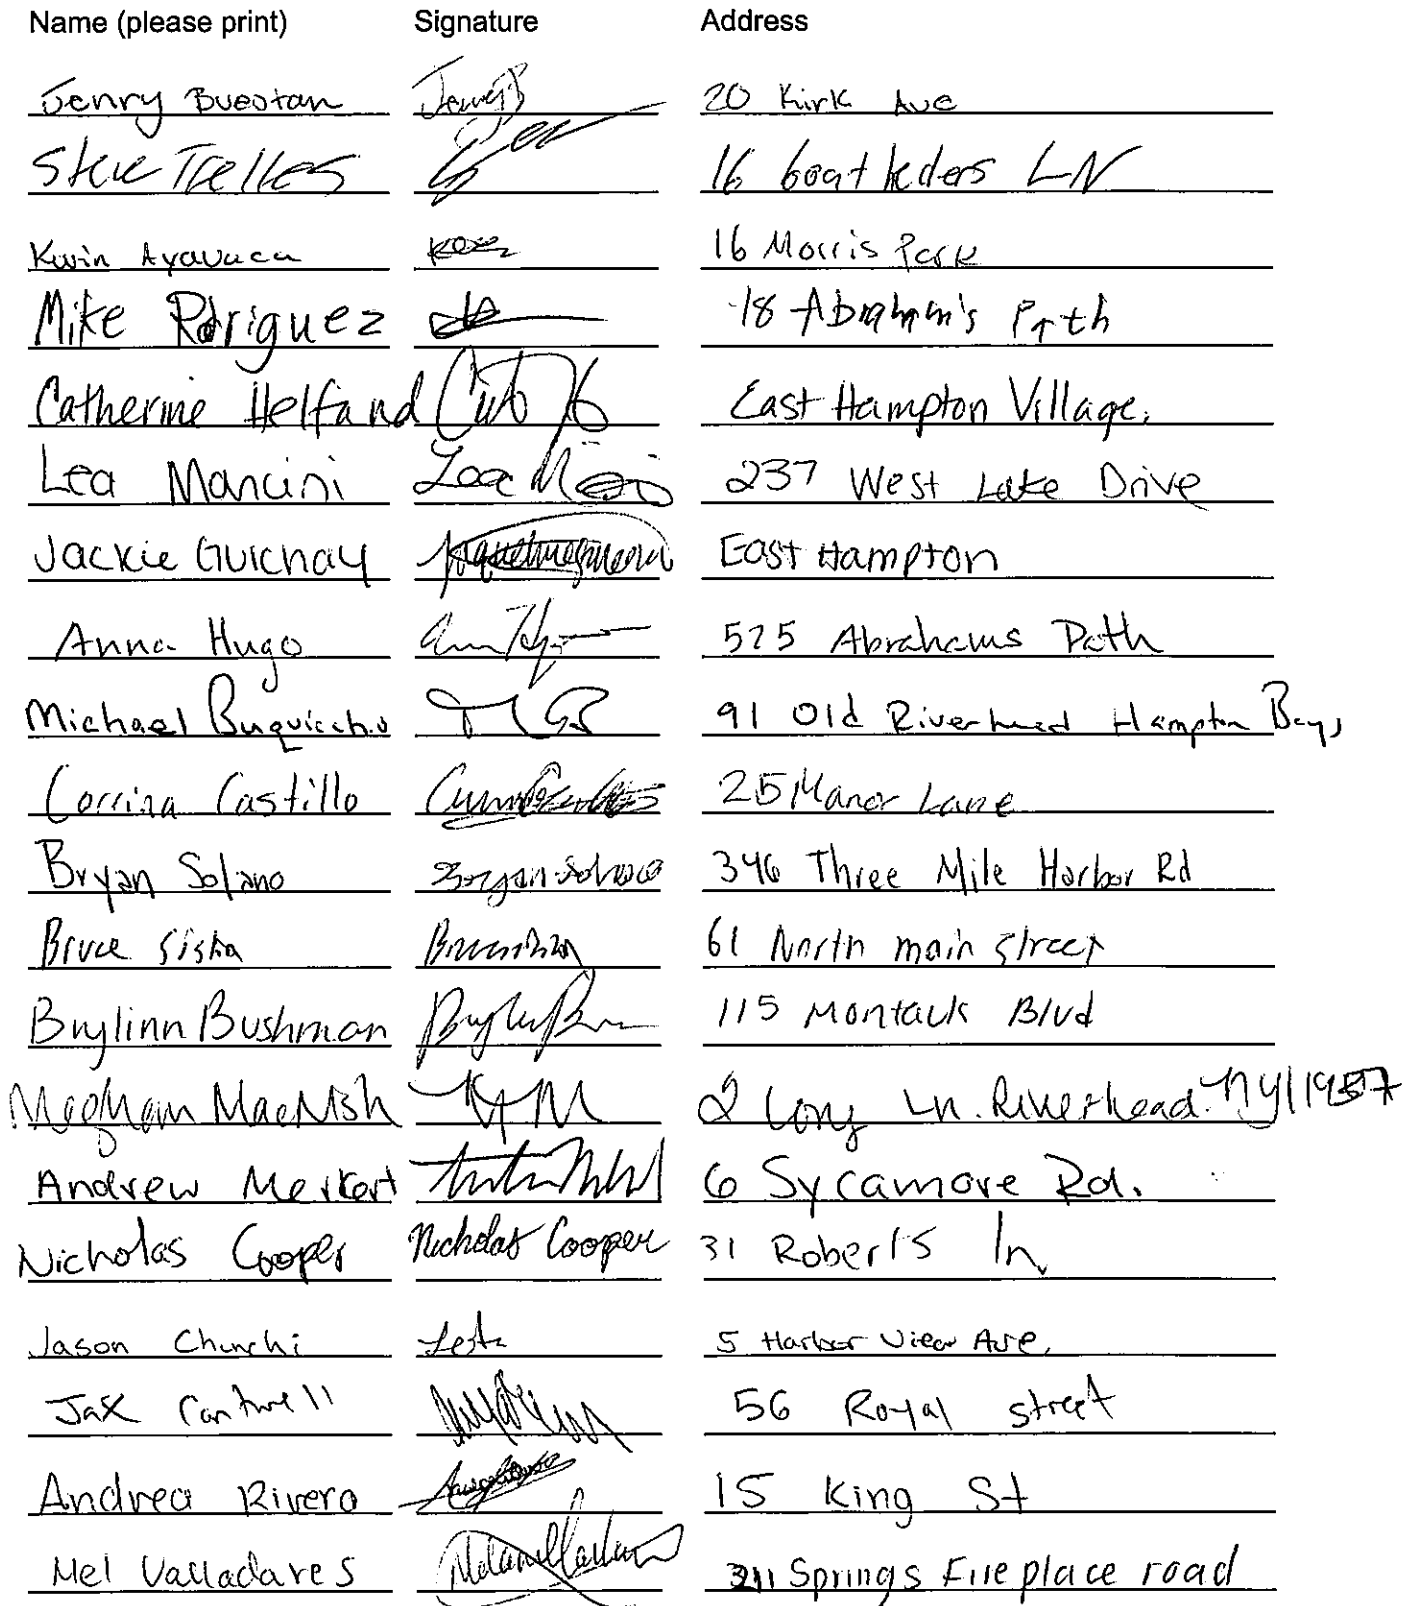 Name (please print) Signature Address
Jenry Buestan Jenry B 20 Kirk Ave
Steve Trelles 16 boat LN
Kevin Ayavaca Kevin 16 Morris Park
Mike Rdriguez 18 Abraham's Path
Catherine Helfand East Hampton Village.
Lea Mancini Lea 237 West Lake Drive
Jackie Guichay East Hampton
Anna Hugo 525 Abrahams Path
Michael Buquicchio MGB 91 Old Riverhead Hampton Bays
Corrina Castillo 25 Manor Lane
Bryan Solano Bryan Solano 346 Three Mile Harbor Rd
Bruce Sisha 61 North main street
Brylinn Bushman 115 Montauk Blvd
Meghan MacNish 2 Long Ln. Riverhead. NY
Andrew Merkert 6 Sycamore Rd.
Nicholas Cooper Nicholas Cooper 31 Roberts ln
Jason Chunchi 5 Harbor View Ave.
Jax Cantwell 56 Royal street
Andrea Rivero 15 King St
Mel Valladares Springs Fireplace road